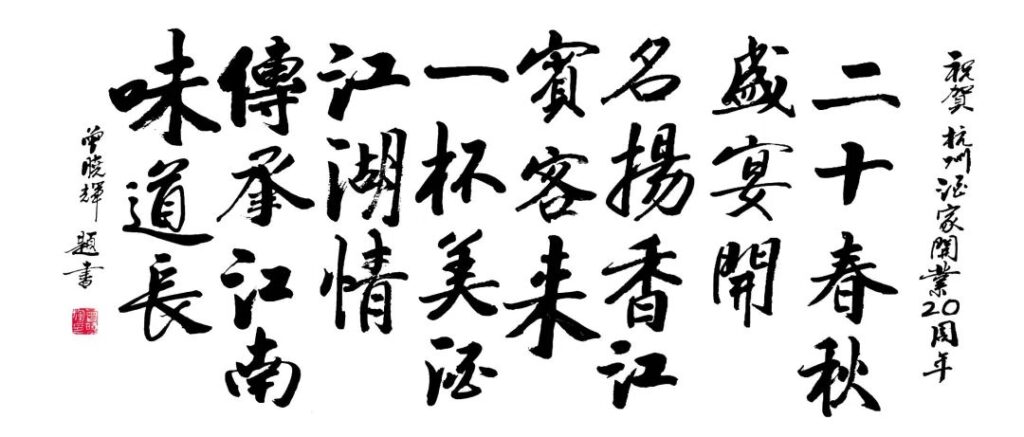 祝賀杭州酒家開業20周年
二十春秋
盛宴開
名揚香江
賓客來
一杯美酒
江湖情
傳承江南
味道長
曾曉輝題書